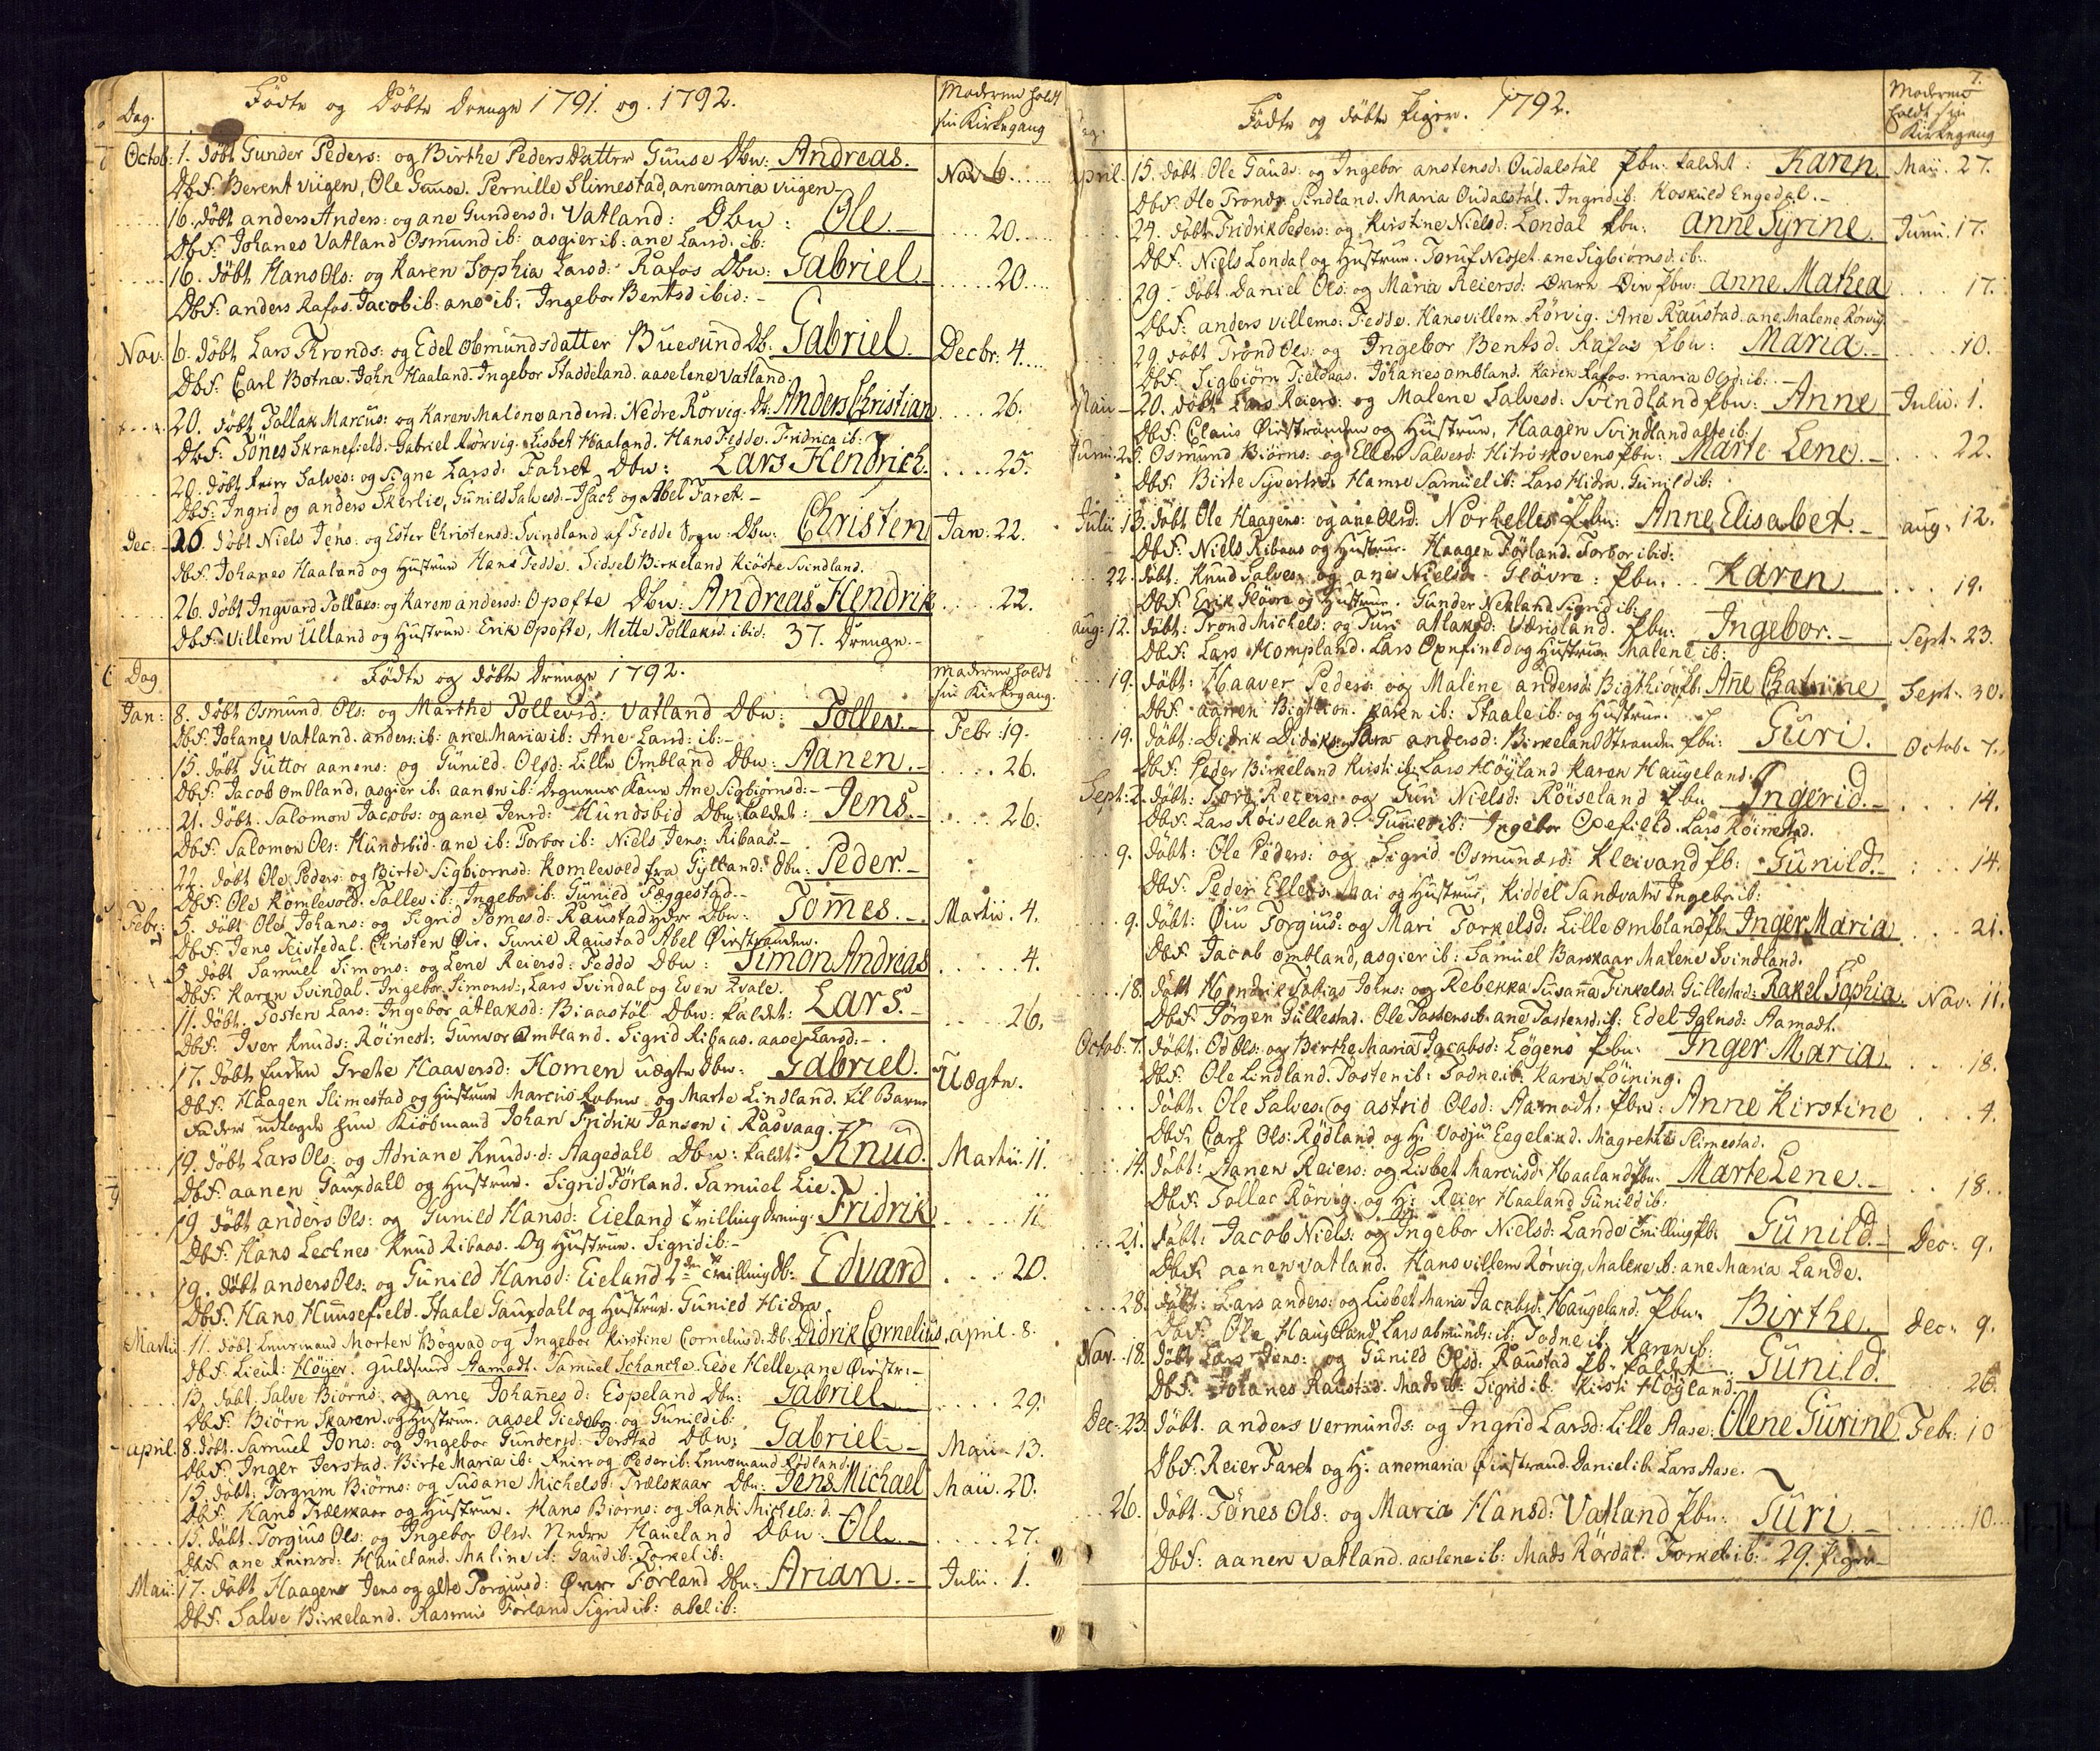 Dag.
Födte og Döbte Drenge 1791. og. 1792.
Moderen holdt
sin Kirkegang
Octob: 1. döbt Gunder Peders: og Birthe PedersDatter Guuse Dbn: Andreas. Nov. 6.
Dbf: Berent viigen, Ole Guuse. Pernille Slimestad, anemaria viigen
16. döbt anders Anders: og ane Gundersd: Vatland: Dbn: Ole. 20.
Dbf: Johanes Vatland Osmund ib: asgier ib: ane Larsd. ib:
16. döbt Hans Ols: og Karen Sophia Larsd: Rafos Dbn: Gabriel. 20.
Dbf: anders Rafos. Jacob ib: ane ib: Ingebor Bentsd ibid:
Nov: 6. döbt Lars Tronds: og Edel obmundsdatter Buesund Db. Gabriel. Decbr: 4.
Dbf: Carl Botna. John Haaland. Ingebor Staddeland. aaselene Vatland
20. döbt Tollak Marcus: og Karen Malene andersd. Nedre Rörvig. Db: Anders Christian 26.
Dbf: Tönes Skranefield. Gabriel Rörvig. Lisbet Haaland. Hans Fedde. Fridrica ib:
20. döbt Salves: og Signe Larsd: Fahret Dbn: Lars Hendrich. 25.
Dbf: Ingrid og anders Skerlie, Gunild Salvesd: Isach og Abel Faret.
Dec: 26. döbt Niels Jens: og Ester Christensd: Svindland af Fedde Sogn Dbn: Christen Jan: 22.
Dbf: Johanes Haaland og Hustrue Hans Fedde. Sidsel Birkeland Kiöste Svindland.
26. döbt Ingvard Tollaks: og Karen andersd: Opofte Dbn: Andreas Hendrik 22.
Dbf: Villem Ulland og Hustrue. Erik Opofte, Mette Tollaksd: ibid: 37. Drenge.
Dag
Födte og döbte Drenge 1792.
Moderen holdt
sin Kirkegang.
Jan: 8. döbt Osmund Ols: og Marthe Tollevsd: Vatland Dbn: Tollev. Febr: 19.
Dbf: Johanes Vatland. anders ib: ane Maria ib: Ane Larsd: ib:
15. döbt Guttor aanens: og Gunild Olsd: Lille Ombland Dbn: Aanen. 26.
Dbf: Jacob ombland, asgier ib: aanen ib: Degnens Kone Ane Sigbiörnsd:
21. döbt Salomon Jacobs: og ane Jensd: Hundsbid Dbn: kaldet: Jens. 26.
Dbf: Salomon Ols: Hundsbid. ane ib: Torbor ib: Niels Jens: Ribaas.
22. döbt Ole Peders: og Birte Sigbiornsd: Komlevold fra Gylland: Dbn: Peder.
Dbf: Ole Komlevold. Tollev ib: Ingebor ib: Gunild Fæggestad.
Febr: 5. döbt Ole Johans: og Sigrid Tomesd: Raustad Dbn: Tomes. Martii. 4.
Dbf: Jens Feistedal. Christen Öie. Gunil Raustad Abel Öiestranden.
5. döbt Samuel Simons: og Lene Reiersd: Fedde Dbn: Simon Andreas 4.
Dbf: Karen Svindal. Ingebor Simonsd:, Lars Svindal og Even Qvale.
11. döbt Tosten Lars: Ingebor atlaksd: Biaastöl Dbn: kaldet: Lars. 26.
Dbf: Iver Knuds: Röinest: Gunvor Ombland. Sigrid Ribaas. aase Larsd:
17. döbt Grethe Haaversd: Homen uægte Dbn: Gabriel. Uægte.
Dbf: Haagen Slimestad og Hustrue Marcus og Marte Lindland. til Barne
Fader udlagde hun Kiöbmand Johan Fridrik Jansen i Rasvaag.
19. döbt Lars Ols: og Adriane Knuds:d: Aagedahl Dbn: kaldt: Knud. Martii. 11.
Dbf: aanen Gauxdahl og Hustrue. Sigrid Förland. Samuel Lie.
19. döbt anders Ols: og Gunild Hansd: Eieland Tvilling Fridrik 11.
Dbf: Hans Lechnes Knud Ribaas. Og Hustrue. Sigrid ib:
19. döbt anders Ols: og Gunild Hansd: Eieland 2den Tvilling Db: Edvard 20.
Dbf: Hans Hunsefield. Staale Gauxdahl og Hustrue. Gunild Hidra
Martii 11. döbt Morten Bögvad og Ingebor Kirstine Cornelius d: Db: Didrik Cornelius. april. 8.
Dbf: Lieut: Höyer. guldsmed Aamodt. Samuel Schancke. Eese Helle, ane Öiestr:
13. döbt Salve Biörns: og ane Johannes d: Espeland Dbn: Gabriel. 29.
Dbf: Biörn Skaren og Hustrue. aasel Giedebo og Gunild ib:
april. 8. döbt. Samuel Jons: og Ingebor Gundersd: Jerstad Dbn: Gabriel. Maii. 13.
Dbf: Inger Jerstad. Birte Maria ib: og Peder ib: Rödland.
15. döbt: Torgrim Biörns: og Susane Michelsd: Trælskaar Dbn: Jens Michael Maii. 20.
Dbf: Hans Trælskaar og Hustrue. Hans Biörns: og Randi Michels:d.
15. döbt. Torgius Ols: og Ingebor Olsd. Nedre Haueland Dbn: Ole. 27.
Dbf: ane: Haueland. Maline ib: Gaud ib: Torkel ib:
Maii: 17. döbt Haagens Jens og alte Torgiusd: Övre Forland Dbn: Arian. Julii. 1.
Dbf: Salve Birkeland. Rasmus Förland Sigrid ib: abel ib:
7.
Födte og döbte Piger. 1792.
Moderens
holdt sin
Kirkegang
April. 15. döbt Ole Gauds: og Ingebor anstensd: Oudalstöl Pbn: kaldet: Karen. Maii. 27.
Dbf: Ole Tronds. Sindland. Maria Oudalstöl. Ingrid ib: Roskuld Engedal.
24. döbt Fridrik Peders: og Kirstine Nielsd: Londal Pbn: Anne Syrine. Junii. 17.
Dbf: Niels Londal og Hustrue. Toruf ane Sigbiörnsd. ib:
29. döbt Daniel Ols: og Maria Reiersd: Övre Öie Pbn: Anne Mathea 17.
Dbf: anders villems: Fedde. Hans villem Rörvig. Ane Raustad. ane Malene Rörvig
29. döbt Trond Ols: og Ingebor Bentsd: Rafos Pbn: Maria. 10.
Dbf: Sigbiörn Fieldsaas. Johanes ombland. Karen Rafos. maria Olsd: ib:
Maii 20. döbt Lars Reiers: og Malene Salvesd: Svindland Pbn: Anne Julii: 1.
Dbf: Claus Öiestranden og Hustrue, Haagen Svindland alte ib:
Junii. Osmund Biörns: og Ellen Salvesd: Hitröskoven Pbn: Marte Lene. 22.
Dbf: Birte Syvertsd: Hamre Samuel ib: Lars Hidra. Gunild ib:
Julii 13. döbt Ole Haagens: og ane Olsd. Norhelle Pbn: Anne Elisabet. aug: 12.
Dbf: Niels Ribaas og Hustrue. Haagen Förland. Torbor ibid:
22. döbt: Knud Salves: og ane Nielsd: Glövre: Pbn: Karen 19.
Dbf: Erik Glövre og Hustrue. Gunder Neeland Sigrid ib:
aug: 12. döbt: Trond Michels: og Turi atlaksd: Værisland. Pbn: Ingebor. Sept: 23.
Dbf: Lars Hompland. Lars Opefield og Hustrue Malene ib:
19. döbt: Haaver Peders: og Malene andersd: Bigthion Pb: Ane Chatrine Sept: 30.
Dbf: aanen Bigthion. Karen ib: Staale ib: og Hustrue.
19. döbt: Didrik Didriks: Sara andersd: Birkeland Stranden Pbn: Guri. Octob: 7.
Dbf: Peder Birkeland Kirsti ib: Lars Höyland Karen Haugeland.
Sept: 2. döbt: Tore Reiers: og Guri Nielsd: Röiseland Pbn Ingerid. 14.
Dbf: Lars Röiseland. Gunild ib: Ingebor Opefield. Lars Röinestad.
9. döbt: Ole Peders: og Sigrid Osmundsd: Kleivand Pb: Gunild. 14.
Dbf: Peder Ellevs: Mai og Hustrue, Kiddel Sandvatn Ingebor ib:
9. döbt: Öiu Torgius: og Mari Torkelsd: Lille ombland Pb: Inger Maria 21.
Dbf: Jacob ombland, asgier ib: Samuel Barskaar Malene Svindland.
18. döbt Hendrik Tobias Johns: og Rebekka Susanna Finkelsd: Gullestad: Rakel Sophia Nov: 11.
Dbf: Jörgen Gullestad. Ole Tostens ib: ane Tostensd: ib: Edel Johnsd: Aamodt.
Octob: 7. döbt: Od Ols: og Birthe Maria Jacobsd: Logens Pbn: Inger Maria. 18.
Dbf: Ole Lindland. Tosten ib: Todne ib: Karen Löining.
döbt: Ole Salves: og astrid Olsd: Aamodt. Pbn: Anne Kirstine 4.
Dbf: Carl Ols: Rödland og H: Vodju Eegeland. Magrethe Slimestad.
14. döbt: Aanen Reiers: og Lisbet Marcusd: Haaland Pbn: Marte Lene. 18.
Dbf: Tollac Rörvig. og H: Reier Haaland Gunild ib:
21. döbt: Jacob Niels: og Ingebor Nielsd: Lande Tvilling Pb: Gunild. Dec: 9.
Dbf: aanen vatland. Hans villem Rörvig. Malene ib: ane Maria Lande.
28. döbt: Lars anders: og Lisbet Maria Jacobsd: Haugeland. Pbn: Birthe. Dec: 9.
Dbf: Ole Haugeland Lars obmunds: ib: Todne ib: Karen ib:
Nov. 18. döbt Lars Jens: og Gunild Olsd: Raustad Pb: kaldet Gunild. 26.
Dbf: Johanes Raustad. Mads ib: Sigrid ib: Kirsti Höyland:
Dec: 23. döbt. anders vermunds: og Ingrid Larsd: Lille Aase: Olene Gurine Febr: 10
Dbf: Reier Faret og H: anemaria Öiestrand. Daniel ib: Lars Aase.
26. döbt Tönes Ols: og Maria Hansd: Vatland Pbn: Turi. 10.
Dbf: aanen vatland. aaslene ib: Mads Rördal. Torkel ib: 29. Piger